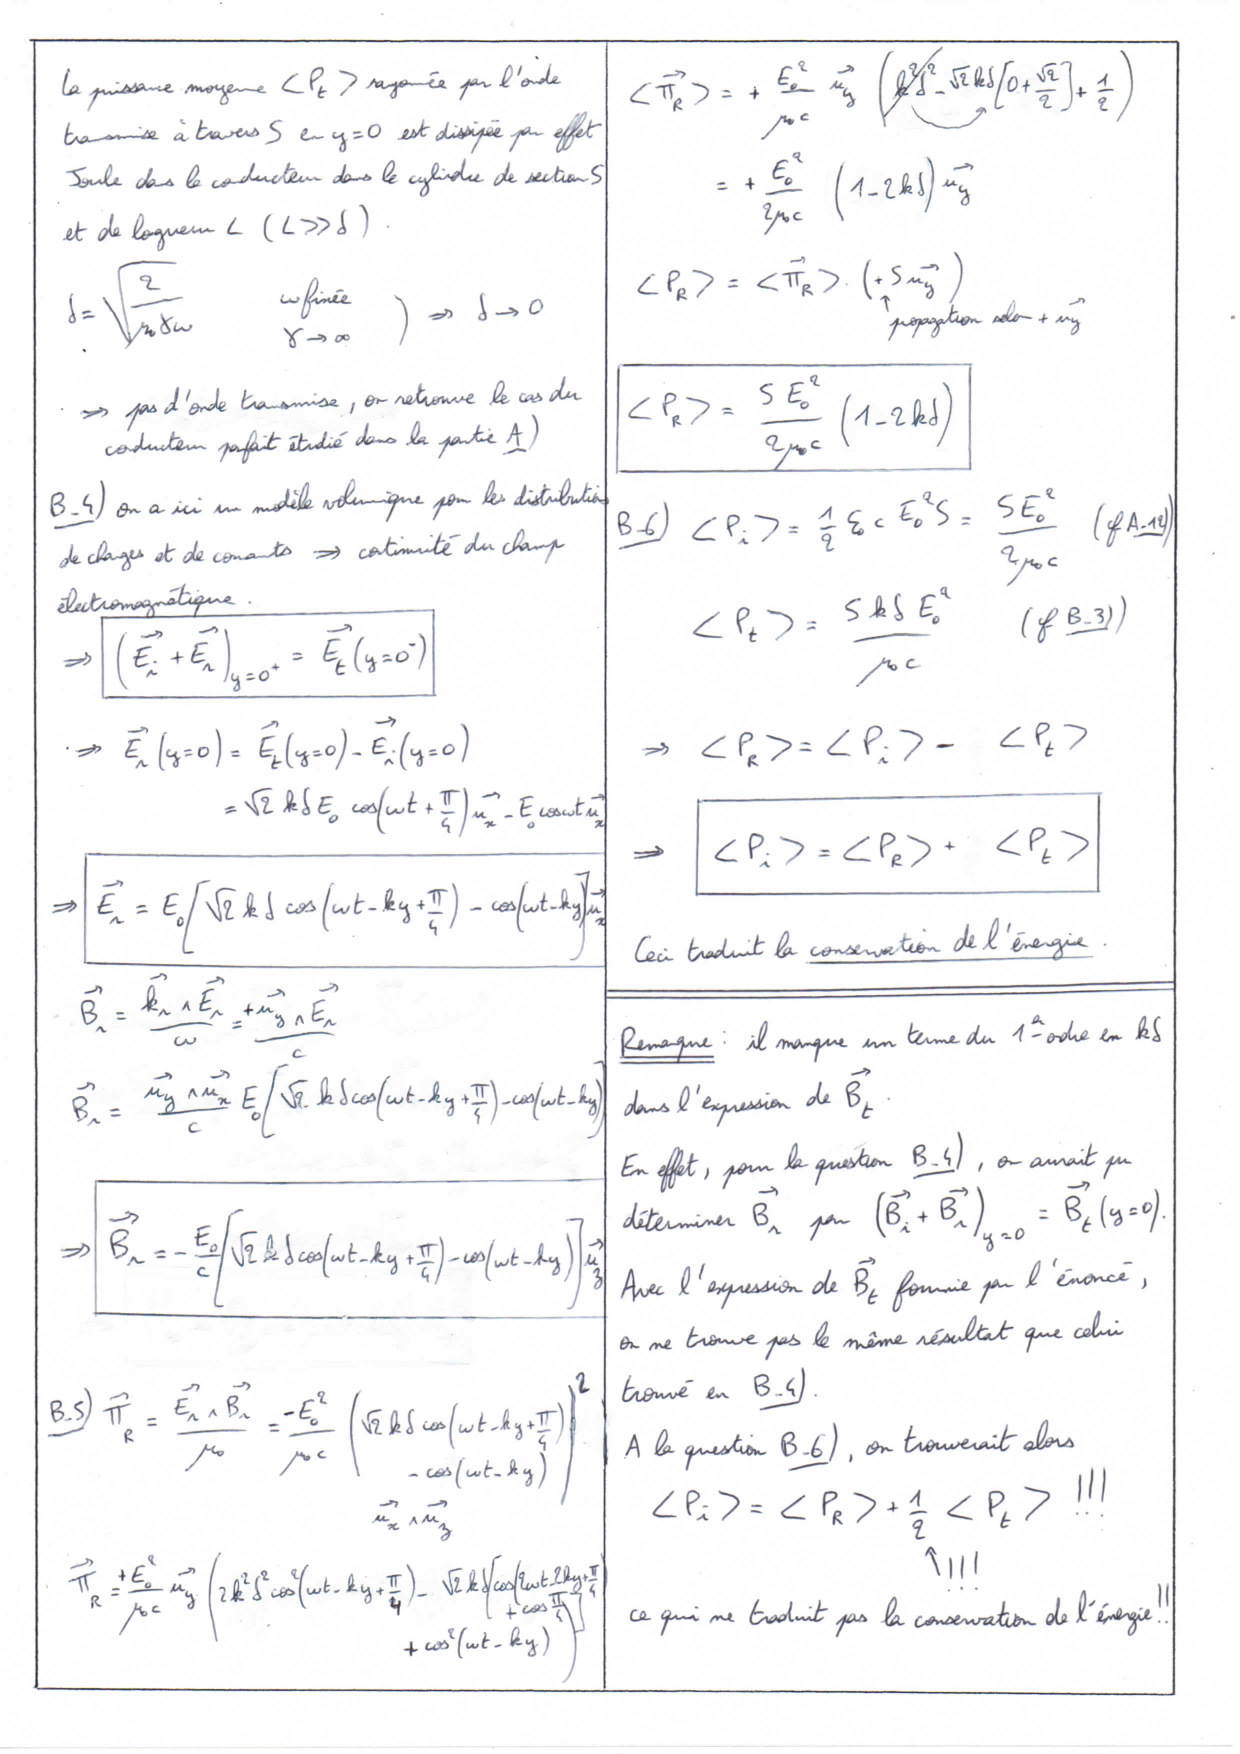 La puissance moyenne < P_t > rayonnée par l'onde
transmise à travers S en y=0 est dissipée par effet
Joule dans le conducteur dans le cylindre de section S
et de longueur L (L>>δ).
δ = √(2/(μ₀γω))   ω fixée   γ → ∞ ) ⇒ δ → 0
⇒ pas d'onde transmise, on retrouve le cas du
conducteur parfait étudié dans la partie A)
B-4) on a ici un modèle volumique pour les distributions
de charges et de courants ⇒ continuité du champ
électromagnétique.
⇒ (E⃗_i + E⃗_r)_{y=0⁺} = E⃗_t (y=0⁻)
⇒ E⃗_r (y=0) = E⃗_t (y=0) - E⃗_i (y=0)
= √2 kδ E₀ cos(ωt + π/4) u⃗_x - E₀ cosωt u⃗_x
⇒ E⃗_r = E₀ [√2 kδ cos(ωt - ky + π/4) - cos(ωt - ky)] u⃗_x
B⃗_r = (k⃗_r ∧ E⃗_r)/ω = (+u⃗_y ∧ E⃗_r)/c
B⃗_r = (u⃗_y ∧ u⃗_x)/c E₀ [√2 kδ cos(ωt - ky + π/4) - cos(ωt - ky)]
⇒ B⃗_r = - E₀/c [√2 kδ cos(ωt - ky + π/4) - cos(ωt - ky)] u⃗_z
B-5) π⃗_R = (E⃗_r ∧ B⃗_r)/μ₀ = -E₀²/(μ₀c) (√2 kδ cos(ωt - ky + π/4)
- cos(ωt - ky))²
u⃗_x ∧ u⃗_z
π⃗_R = +E₀²/(μ₀c) u⃗_y (2k²δ² cos²(ωt - ky + π/4) - √2 kδ [cos(2ωt - 2ky + π/4)
+ cos π/4]
+ cos²(ωt - ky))
< π⃗_R > = + E₀²/(μ₀c) u⃗_y (k²δ² - √2 kδ [0 + √2/2] + 1/2)
= + E₀²/(2μ₀c) (1 - 2kδ) u⃗_y
< P_R > = < π⃗_R > . (+ S u⃗_y)
propagation selon + u⃗_y
< P_R > = S E₀²/(2μ₀c) (1 - 2kδ)
B-6) < P_i > = 1/2 ε₀ c E₀² S = S E₀²/(2μ₀c) (cf A-12)
< P_t > = S kδ E₀²/(μ₀c) (cf B-3))
⇒ < P_R > = < P_i > - < P_t >
⇒ < P_i > = < P_R > + < P_t >
Ceci traduit la conservation de l'énergie.
Remarque : il manque un terme du 1er ordre en kδ
dans l'expression de B⃗_t.
En effet, pour la question B-4), on aurait pu
déterminer B⃗_r par (B⃗_i + B⃗_r)_{y=0} = B⃗_t (y=0).
Avec l'expression de B⃗_t fournie par l'énoncé,
on ne trouve pas le même résultat que celui
trouvé en B-4).
A la question B-6), on trouverait alors
< P_i > = < P_R > + 1/2 < P_t > !!!
!!!
ce qui ne traduit pas la conservation de l'énergie !!